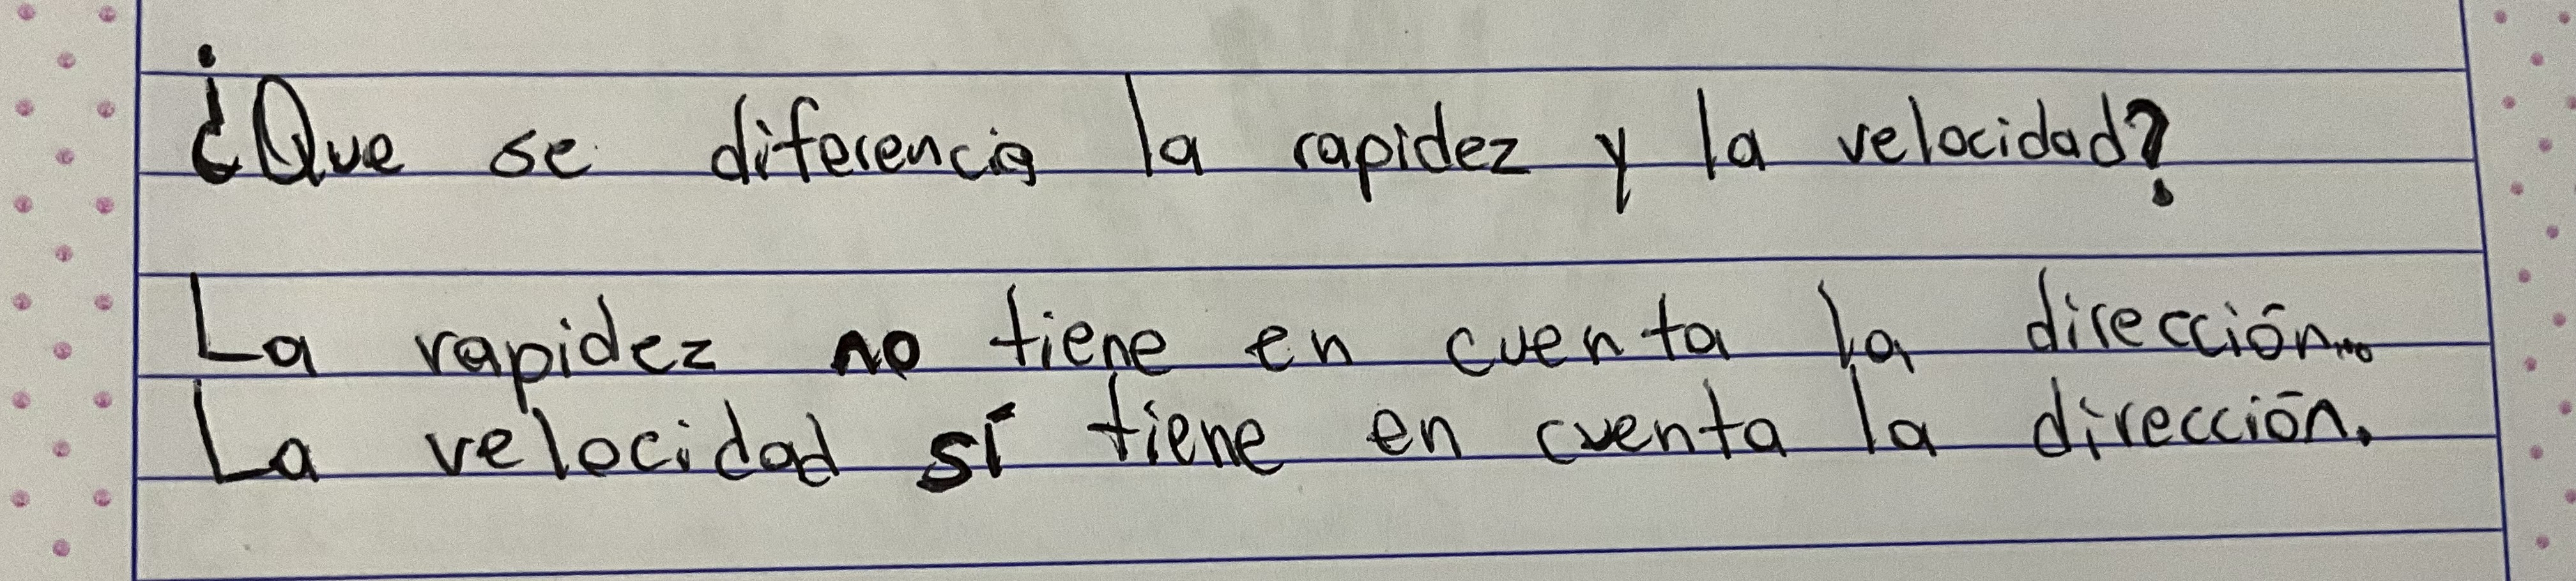 ¿Que se diferencia la rapidez y la velocidad?
La rapidez no tiene en cuenta la dirección...
La velocidad sí tiene en cuenta la dirección.